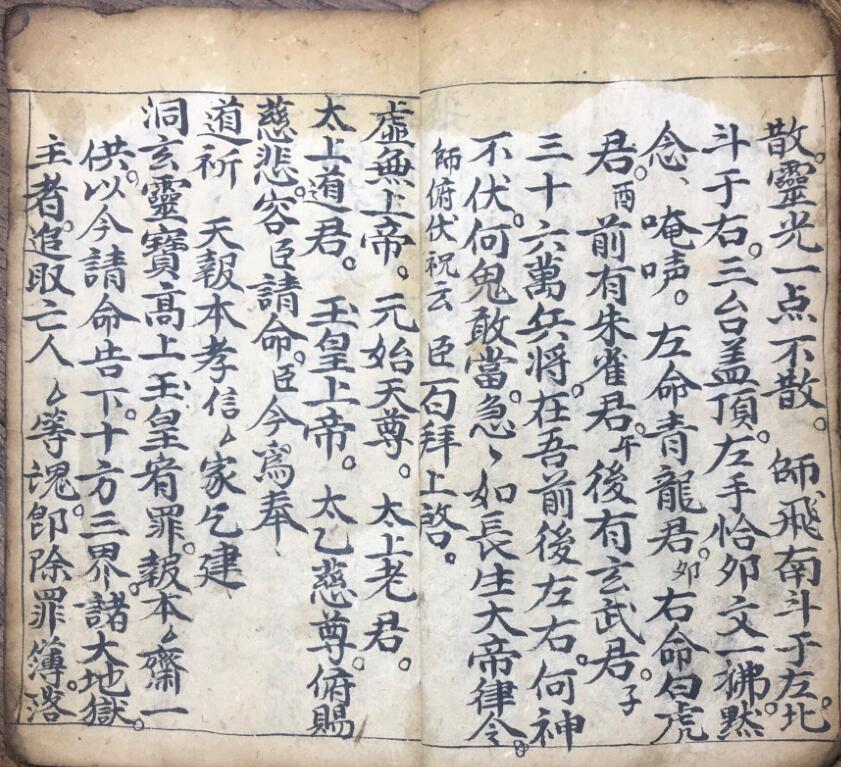 散。靈光一点不散。師飛南斗于左。北
斗于右。三台盖頂。左手恰夘文一拂。黙
念、唵吽。左命青龍君。夘右命白虎
君。酉前有朱雀君。午後有玄武君。子
三十六萬兵将。在吾前後左右。何神
不伏。何鬼敢當。急〻如長生大帝律令。
師俯伏祝云 臣一百拜上啓。
虚無上帝。元始天尊。太上老君。
太上道君。玉皇上帝。太乙慈尊。俯賜
慈悲。容臣請命。臣今爲奉
道祈 天報本孝信〻家乞建
洞玄靈寶高上玉皇宥罪。報本〻齋一
供。以今請命告下。十方三界諸大地獄。
主者。追取亡人〻等魂。卽除罪簿。落